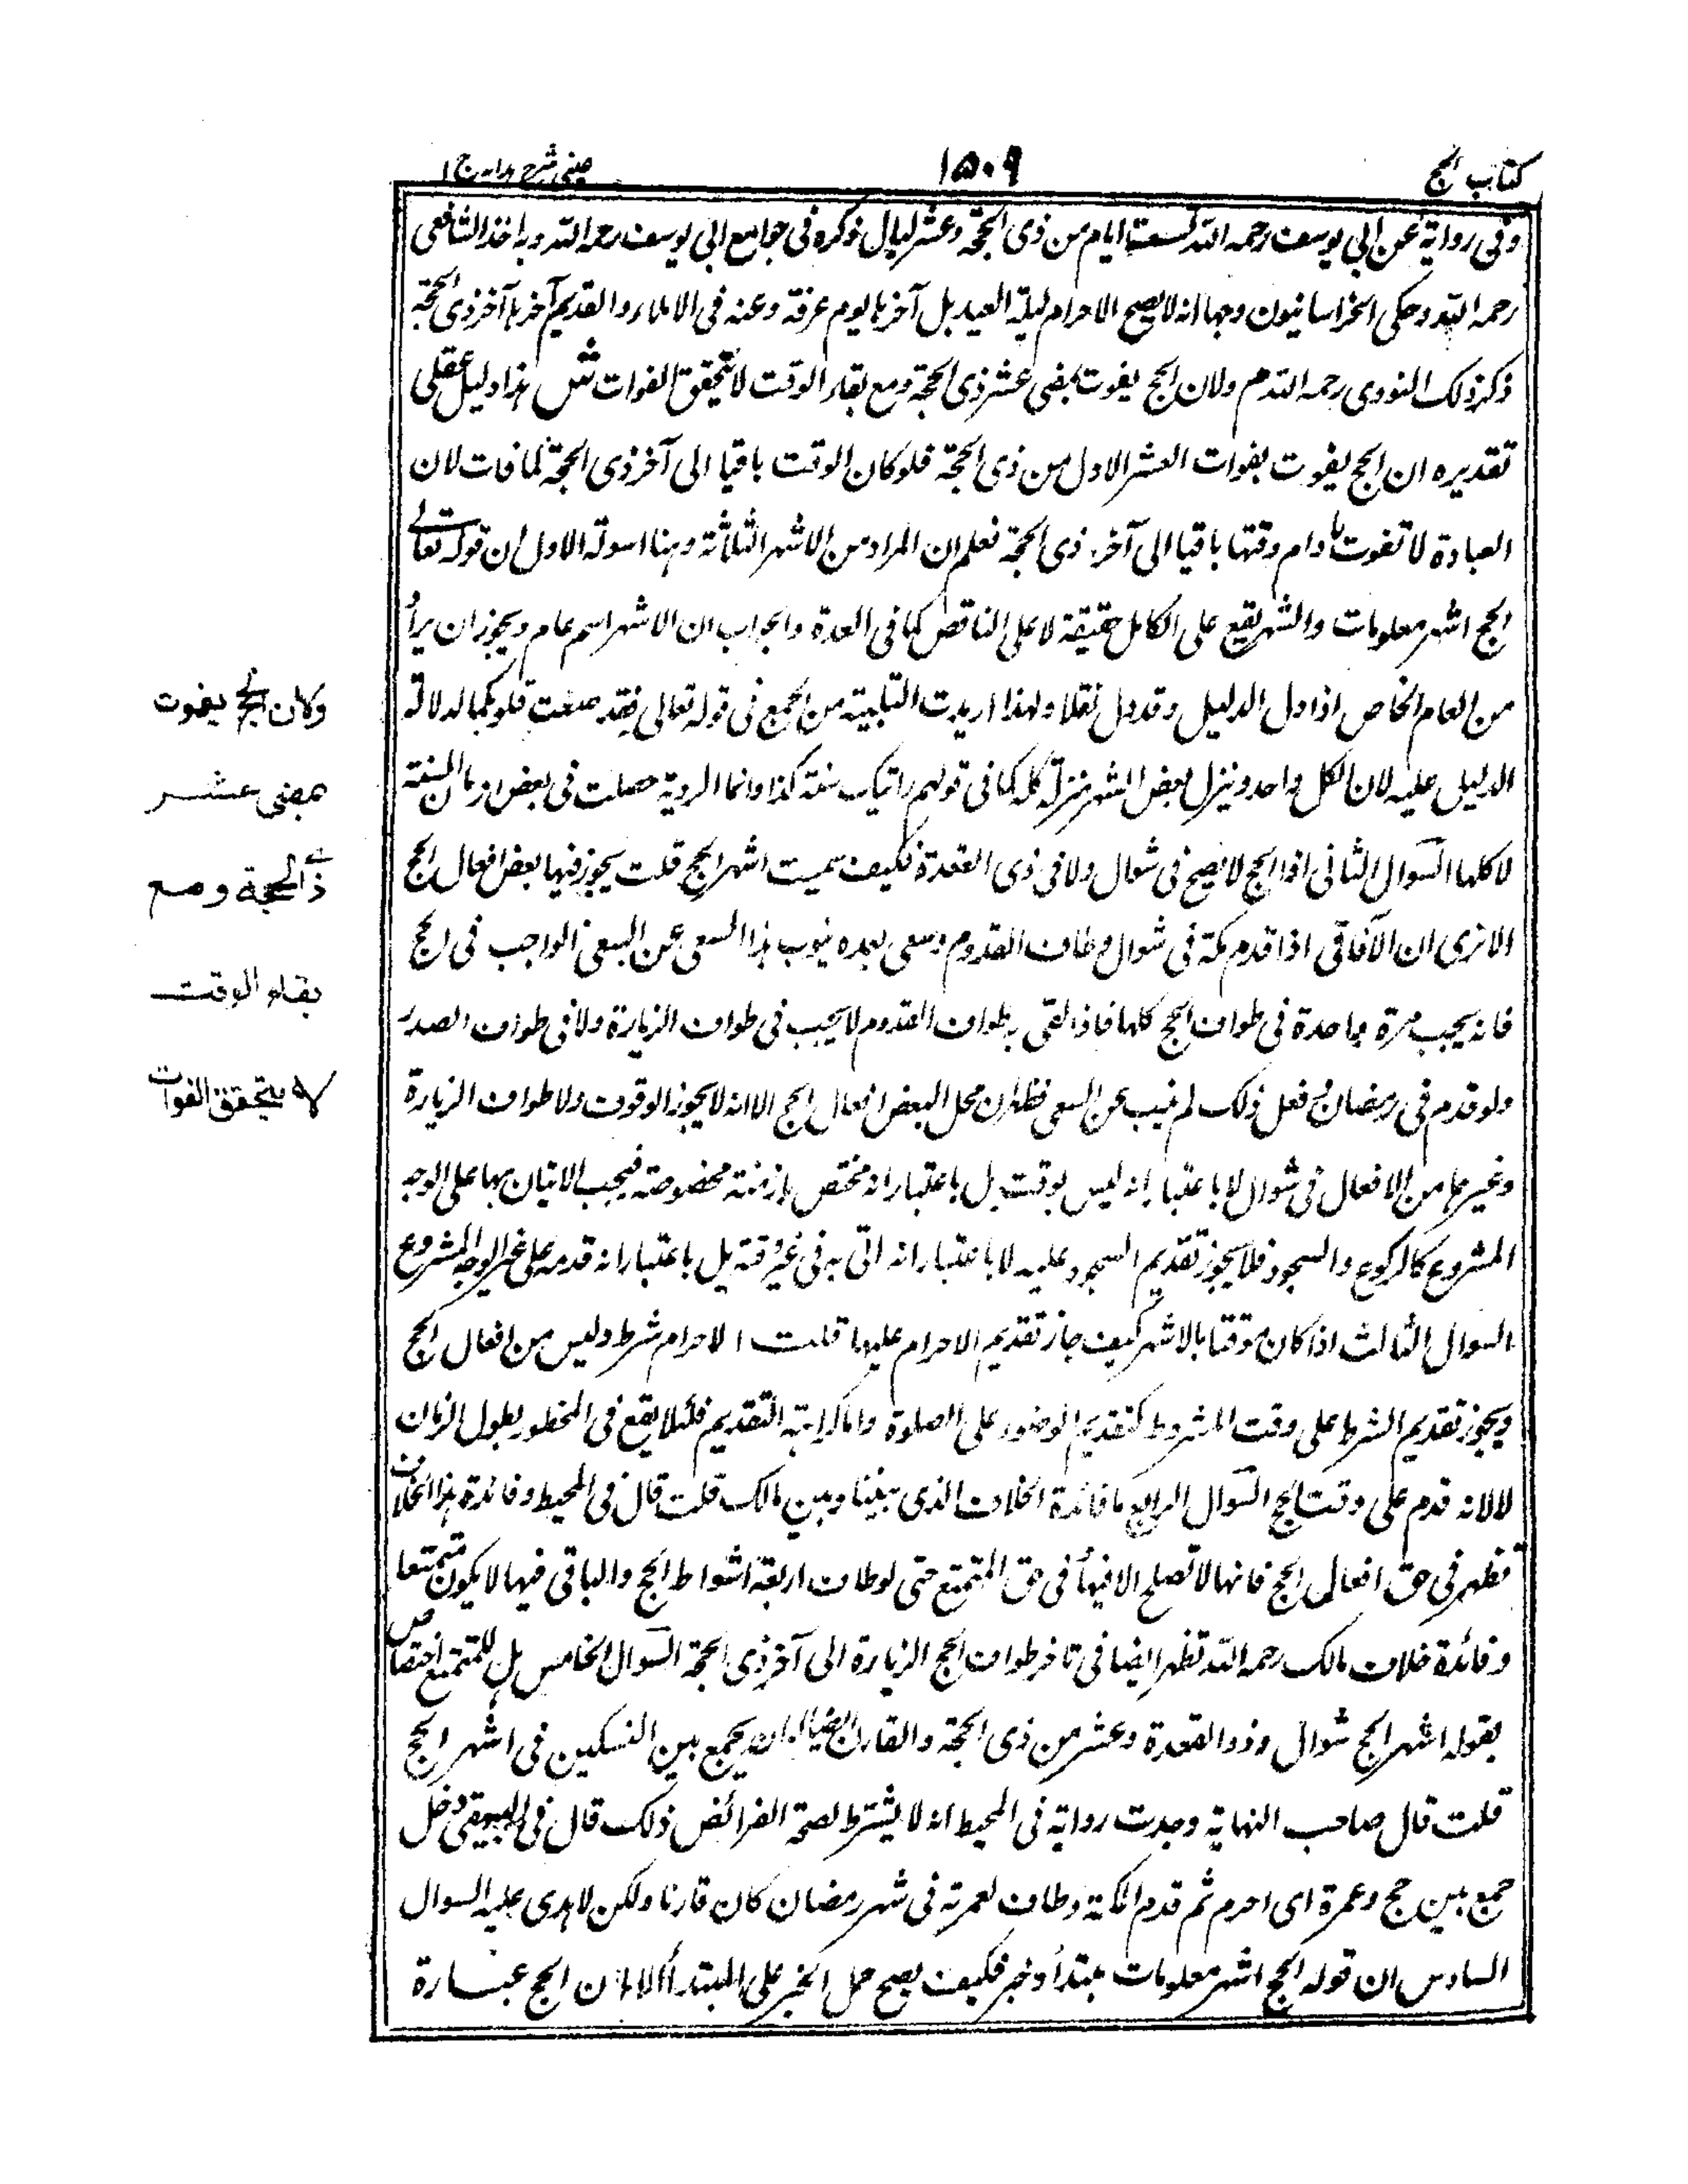 كتاب الحج
١٥٠٩
عينى شرح هدايہ ج ١
وفى رواية عن ابى يوسف رحمه الله تسعة ايام من ذى الحجة وعشر ليال ذكره فى جوامع ابى يوسف رحمه الله وبه اخذ الشافعى
رحمه الله وحكى الخراسانيون وجها انه لا يصح الاحرام ليلة العيد بل آخرها يوم عرفة وعنه فى الاملاء والقديم آخرها آخر ذى الحجة
ذكر ذلك النووى رحمه الله م ولان الحج يفوت بمضى عشر ذى الحجة ومع بقاء الوقت لا يتحقق الفوات ش هذا دليل عقلى
تقديره ان الحج يفوت بفوات العشر الاول من ذى الحجة فلو كان الوقت باقيا الى آخر ذى الحجة لما فات لان
العبادة لا تفوت ما دام وقتها باقيا الى آخر ذى الحجة فعلم ان المراد من الاشهر الثلاثة وهنا اسولة الاول ان قوله تعالى
الحج اشهر معلومات والشهر يقع على الكامل حقيقة لا على الناقص كما فى العدة والجواب ان الاشهر اسم عام ويجوز ان يراد
من العام الخاص اذا دل الدليل وقد دل نقلا ولهذا اريدت التثنية من الجمع فى قوله تعالى فقد صغت قلوبكما لدلالة
الدليل عليه لان الكل واحد وينزل بعض الشهر منزلة كله كما فى قولهم رايتك سنة كذا وانما الروية حصلت فى بعض ازمان السنة
لا كلها السوال الثانى اذا الحج لا يصح فى شوال ولا فى ذى القعدة فكيف سميت اشهر الحج قلت يجوز فيها بعض افعال الحج
الا ترى ان الآفاقى اذا قدم مكة فى شوال وطاف القدوم وسعى بعده ينوب هذا السعى عن السعى الواجب فى الحج
فانه يجب مرة واحدة فى طواف الحج كلها فاذا لقى بطواف القدوم لا يجب فى طواف الزيارة ولا فى طواف الصدر
ولو قدم فى رمضان وفعل ذلك لم ينب عن السعى فظهر ان محل البعض افعال الحج الا انه لا يجوز الوقوف ولا طواف الزيارة
وغيرهما من الافعال فى شوال لا باعتبار انه ليس بوقت بل باعتبار انه مختص بازمنة مخصوصة فيجب الاتيان بها على الوجه
المشروع كالركوع والسجود فلا يجوز تقديم السجود عليه لا باعتبار انه اتى به فى غير وقته بل باعتبار انه قدمه على غير الوجه المشروع
السوال الثالث اذا كان موقتا بالاشهر كيف جاز تقديم الاحرام عليها قلت الاحرام شرط وليس من افعال الحج
ويجوز تقديم الشرط على وقت المشروط كتقديم الوضوء على الصلوة واما كراهة التقديم فلئلا يقع فى المحظور بطول الزمان
لا لانه قدم على وقت الحج السوال الرابع ما فائدة الخلاف الذى بيننا وبين مالك قلت قال فى المحيط وفائدة هذا الخلاف
تظهر فى حق افعال الحج فانها لا تصلح الا فيها فى حق المتمتع حتى لو طاف اربعة اشواط الحج والباقى فيها لا يكون متمتعا
وفائدة خلاف مالك رحمه الله تظهر ايضا فى تاخر طواف الحج الزيارة الى آخر ذى الحجة السوال الخامس بل للمتمتع اختصاص
بقوله اشهر الحج شوال وذو القعدة وعشر من ذى الحجة والقارن ايضا له ان يجمع بين النسكين فى اشهر الحج
قلت قال صاحب النهاية وجدت رواية فى المحيط انه لا يشترط لصحة الفرائض ذلك قال فى دخل
جمع بين حج وعمرة اى احرم ثم قدم المكة وطاف لعمرته فى شهر رمضان كان قارنا ولكن لا هدى عليه السوال
السادس ان قوله الحج اشهر معلومات مبتدأ وخبر فكيف يصح حمل الخبر على المبتدأ ان الحج عبارة
وكان الحج يفوت
بمضى عشر
ذى الحجة ومع
بقاء الوقت
لا يتحقق الفوات